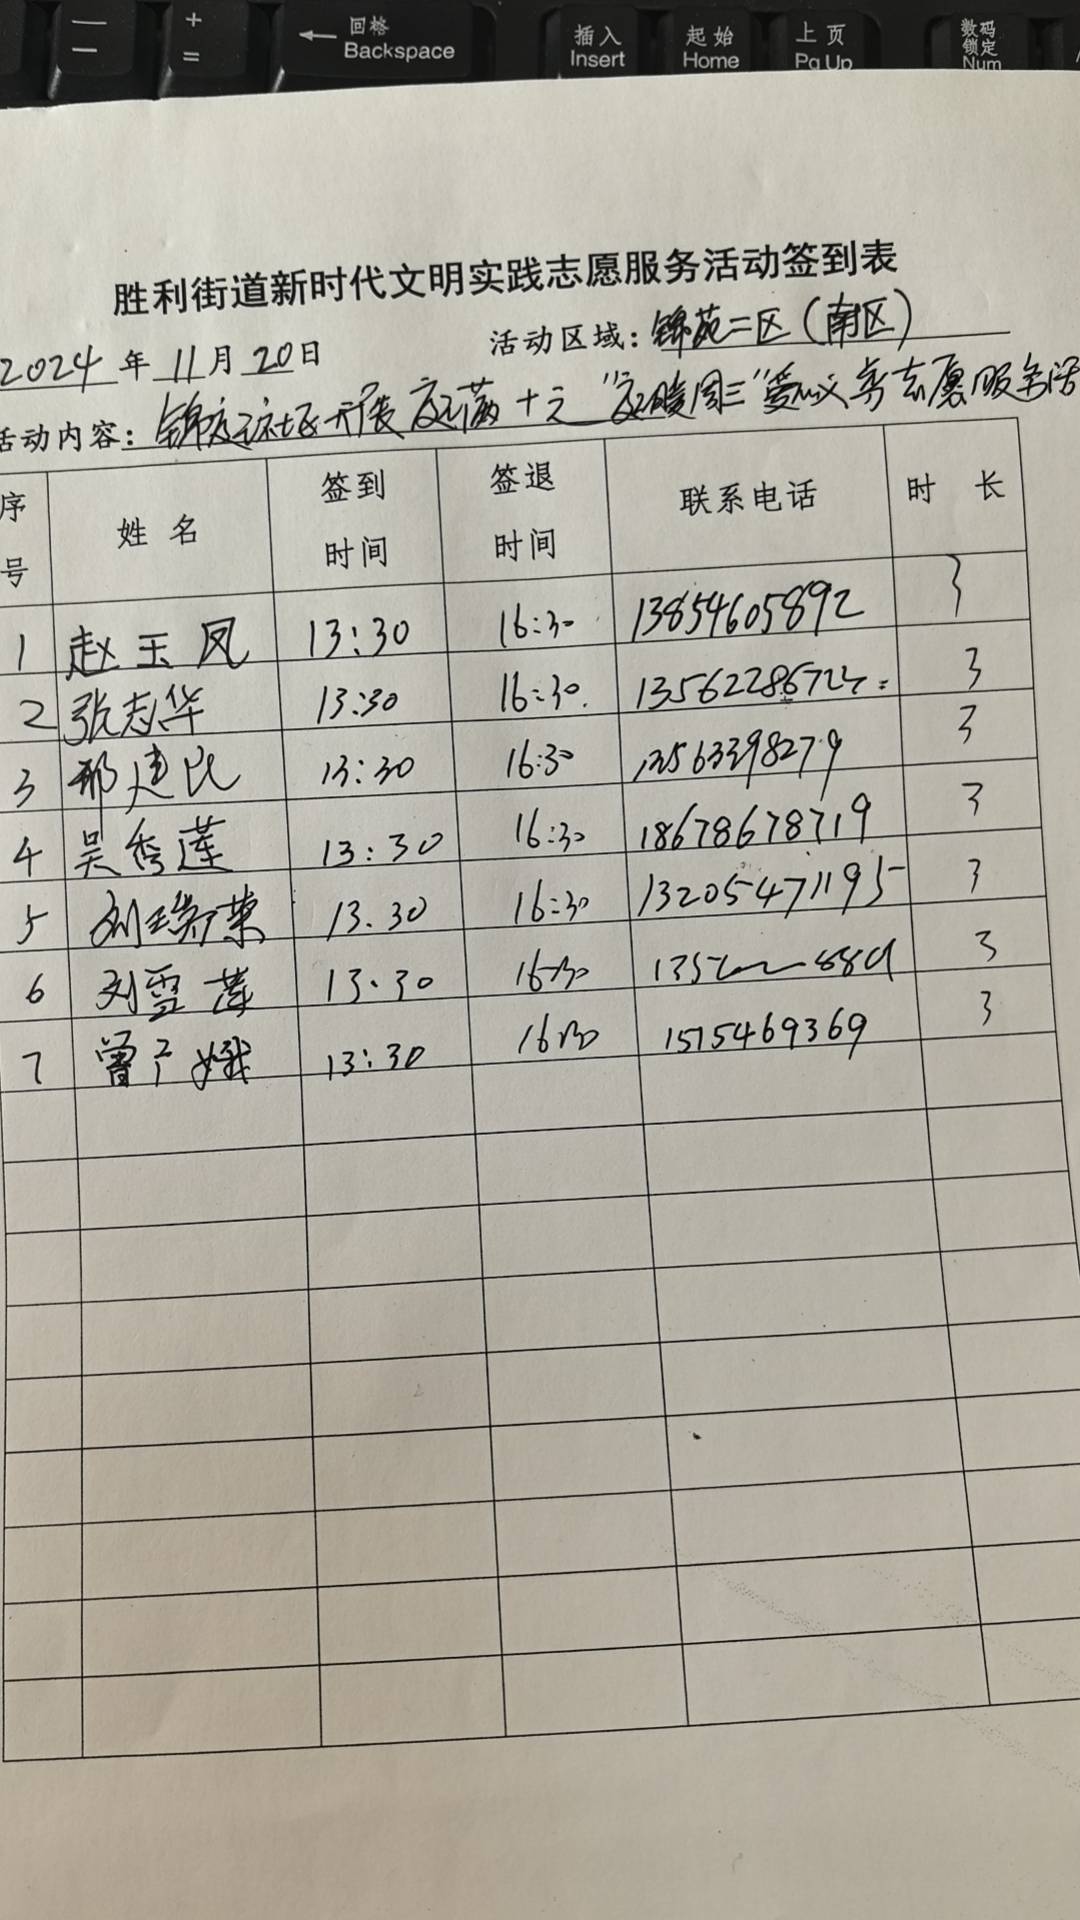 — 一 + = 回格 Backspace 插入 Insert 起始 Home 上页 Pg Up 数码锁定 Num
胜利街道新时代文明实践志愿服务活动签到表
2024 年 11 月 20 日 活动区域：锦苑二区（南区）
活动内容：锦 社区开展 满十元 "暖周三" 义剪志愿服务活
序号 姓名 签到时间 签退时间 联系电话 时长
1 赵玉凤 13:30 16:30 13854605892 3
2 张志华 13:30 16:30 3
3 邢建民 13:30 16:30 13563398279 3
4 吴秀莲 13:30 16:30 18678678719 3
5 刘瑞荣 13.30 16:30 13205471195 3
6 刘雪莲 13.30 16:30 3
7 曾广娥 13:30 16:30 1575469369 3